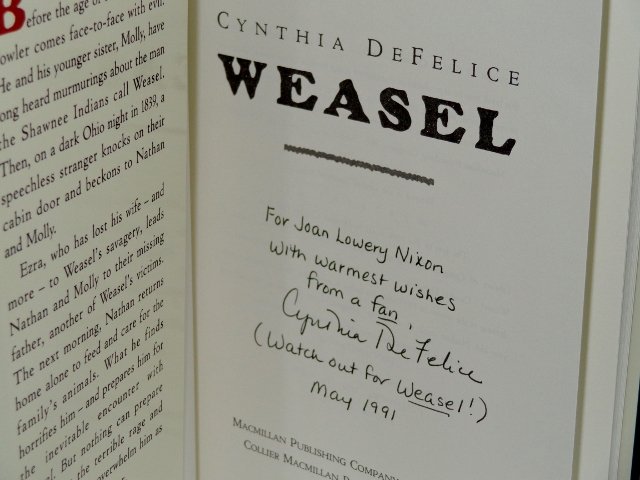 Before the age of
owler comes face-to-face with evil.
He and his younger sister, Molly, have
long heard murmurings about the man
the Shawnee Indians call Weasel.
Then, on a dark Ohio night in 1839, a
speechless stranger knocks on their
cabin door and beckons to Nathan
and Molly.
Ezra, who has lost his wife – and
more – to Weasel's savagery, leads
Nathan and Molly to their missing
father, another of Weasel's victims.
The next morning, Nathan returns
home alone to feed and care for the
family's animals. What he finds
horrifies him – and prepares him for
the inevitable encounter with
But nothing can prepare
the terrible rage and
overwhelm him as
CYNTHIA DEFELICE
WEASEL
For Joan Lowery Nixon
with warmest wishes
from a fan,
Cynthia DeFelice
(Watch out for Weasel!)
May 1991
MACMILLAN PUBLISHING COMPANY
COLLIER MACMILLAN